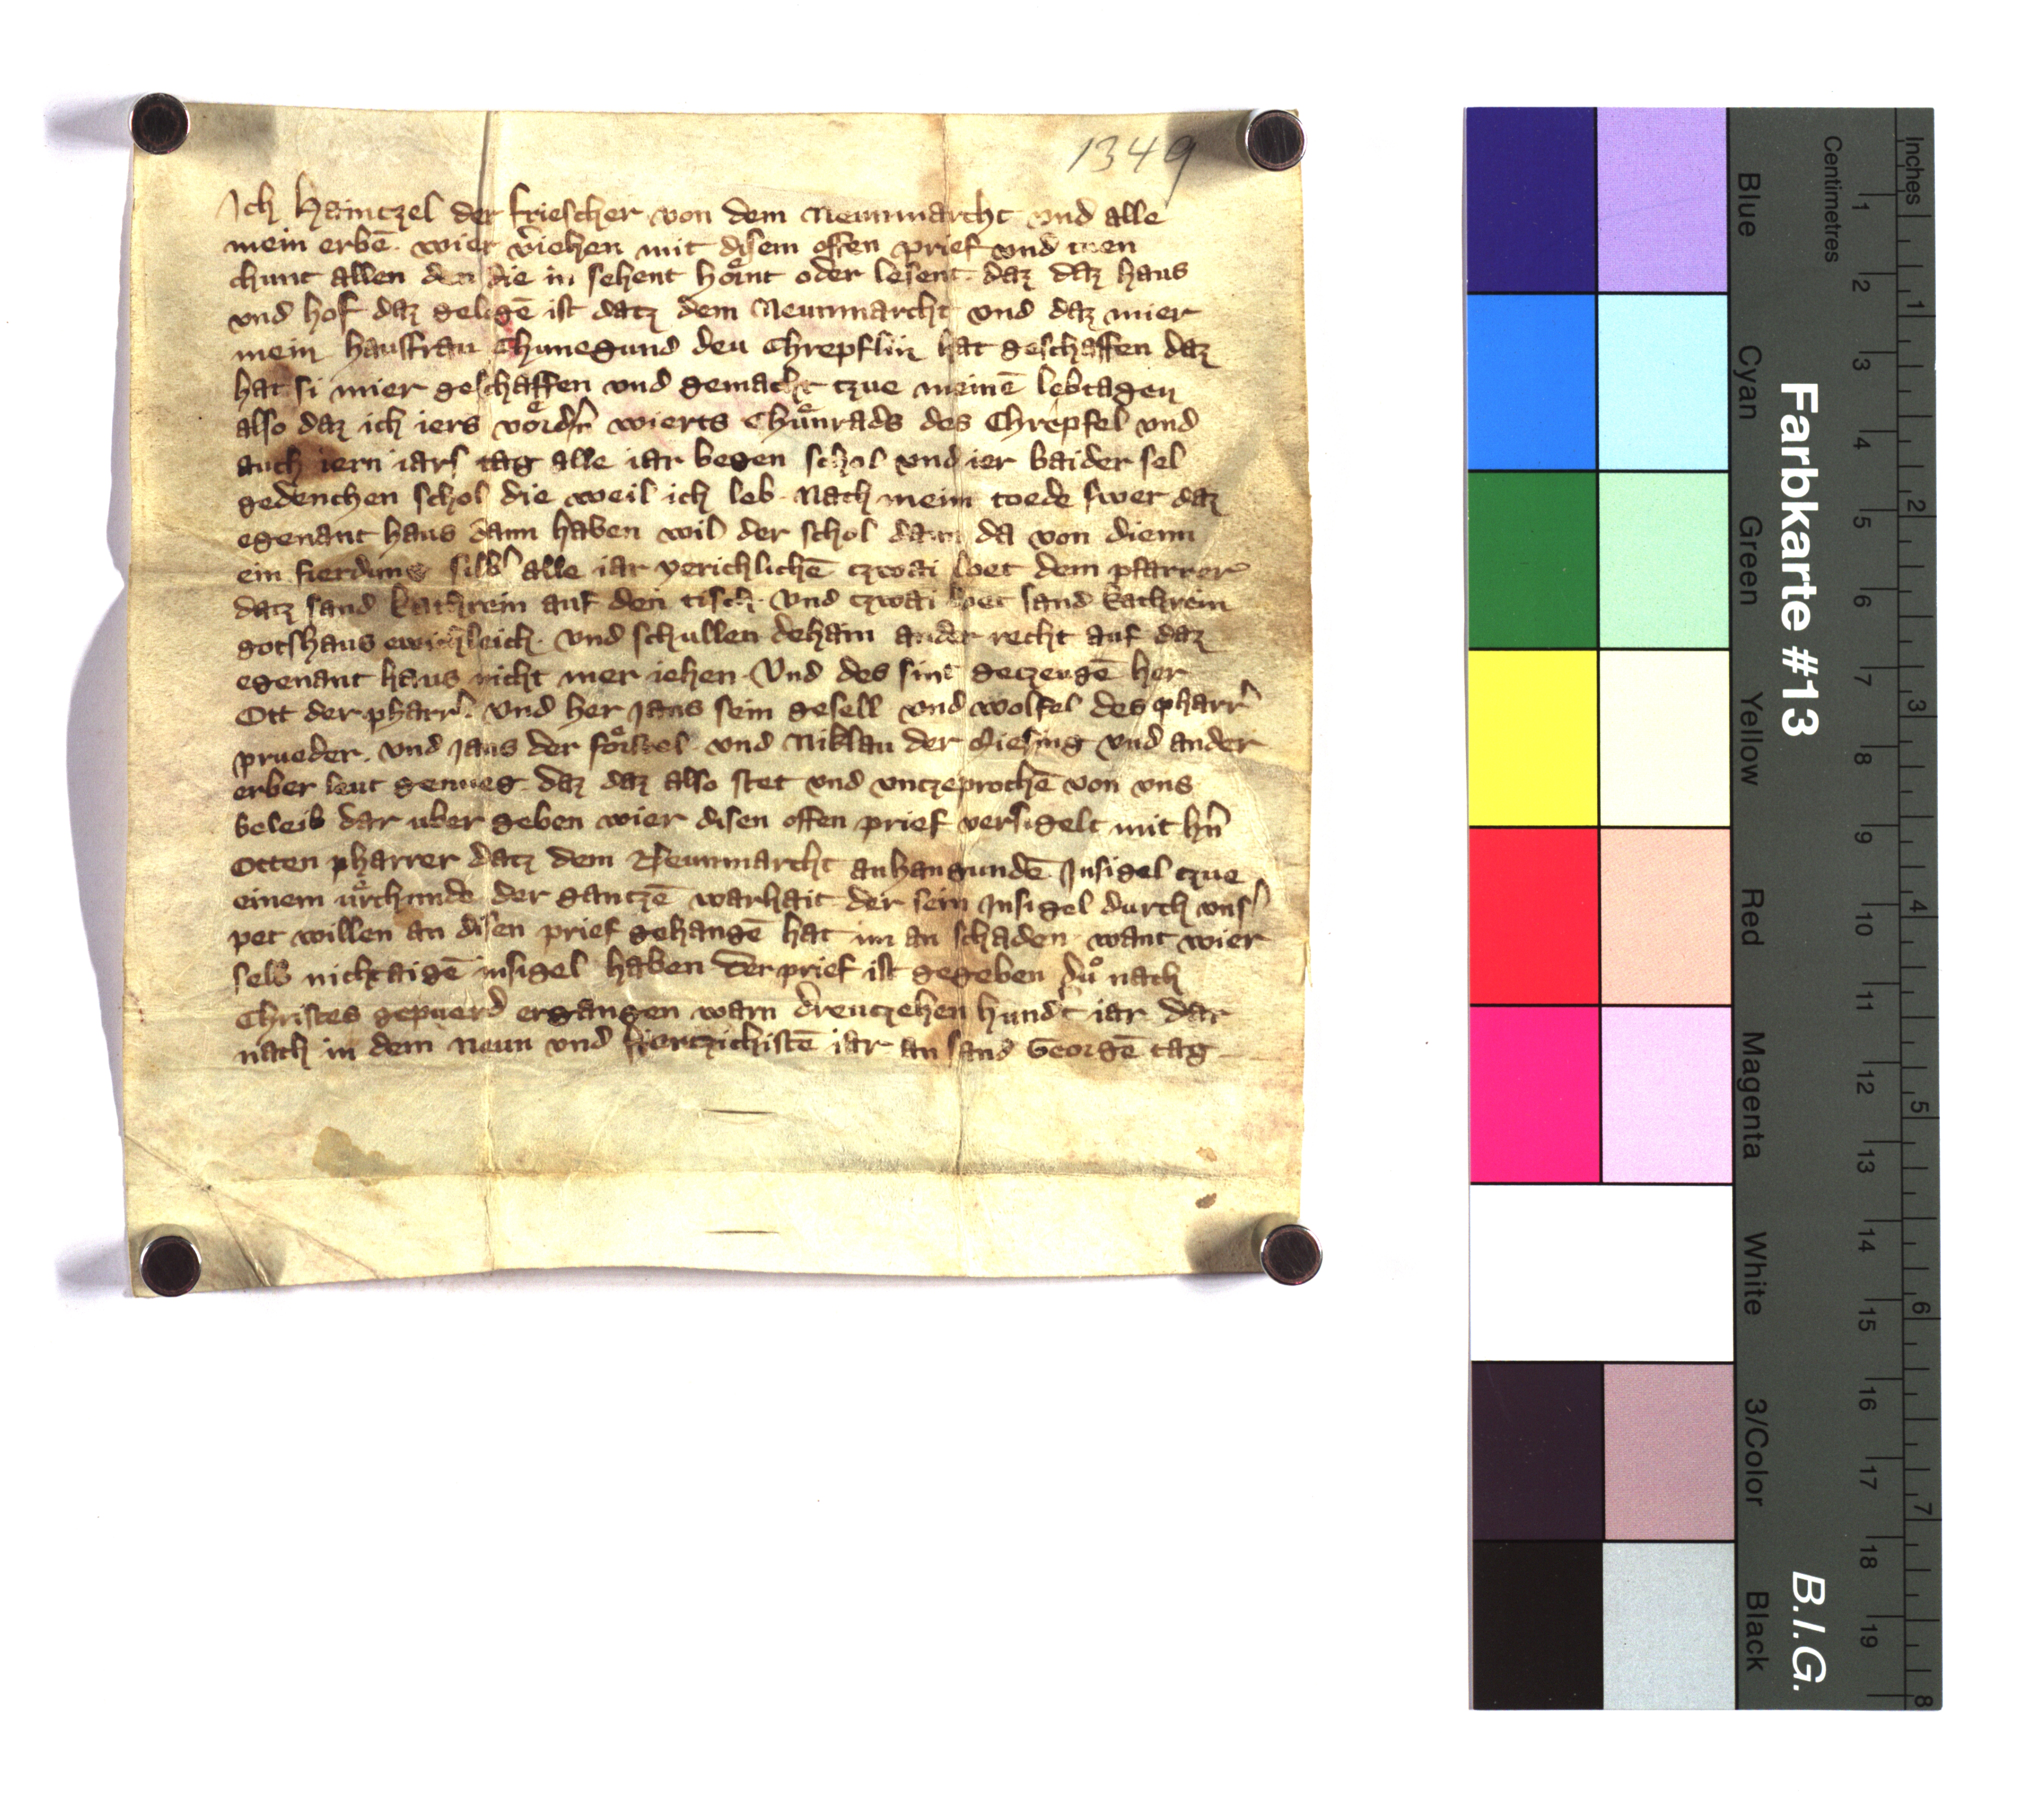 1349
Ich Haintzel der friescher von dem Neunmarcht vnd alle
mein erbē. wier v̄iehen mit disem offen prief vnd tuen
chunt allen den die in sehent hoͤrnt oder lesent. daz daz haus
vnd hof daz gelegē ist datz dem Neunmarcht vnd daz mier
mein hausfrau Chunegund deu Chrepflin hat geschaffen daz
hat si mier geschaffen vnd gemacht tzue meinē lebtagen
also daz ich iers voͤrdn̄ wierts Chuͤnrads des Chrepfel vnd
auch iern iars tag alle iar begen schol vnd ier baider sel
gedenchen schol die weil ich leb. Nach meim toede swer daz
egenant haus dann haben wil der schol dann da von dienn
ein fierdung silb̄ alle iar yerichlichē tzwai loet dem pfarrer
datz sand kathrein auf den tisch. vnd tzwai loet sand kathrein
gotshaus ewichleich. vnd schullen dehain ander recht auf daz
egenant haus nicht mer iehen. Vnd des sint getzeugē her
Ott der pharr̄. vnd her Jans sein gesell vnd wolfel des pharr̄
prueder. vnd Jans der vnd Niklau der Giesing vnd ander
erber leut genueg. daz daz also stet vnd vntzeprochē von vns
beleib dar uber geben wier disen offen prief versigelt mit hn̄
Otten pharrer datz dem Neunmarcht anhangundē Insigel tzue
einem uͤrchunde der gantzē warhait der sein Insigel durch vns̄
pet willen an disen prief gehangē hat im an schaden. want wier
selb nicht aigē insigel haben. Der prief ist gegeben duͦ nach
Christes gepuerd ergangen warn dreutzehen hund̄t iar dar
nach in dem Neun vnd viertzichistē iar an sand Georgē tag
Farbkarte #13
B.I.G.
Centimetres
Inches
Blue
Cyan
Green
Yellow
Red
Magenta
White
3/Color
Black
1 2 3 4 5 6 7 8 9 10 11 12 13 14 15 16 17 18 19
1 2 3 4 5 6 7 8